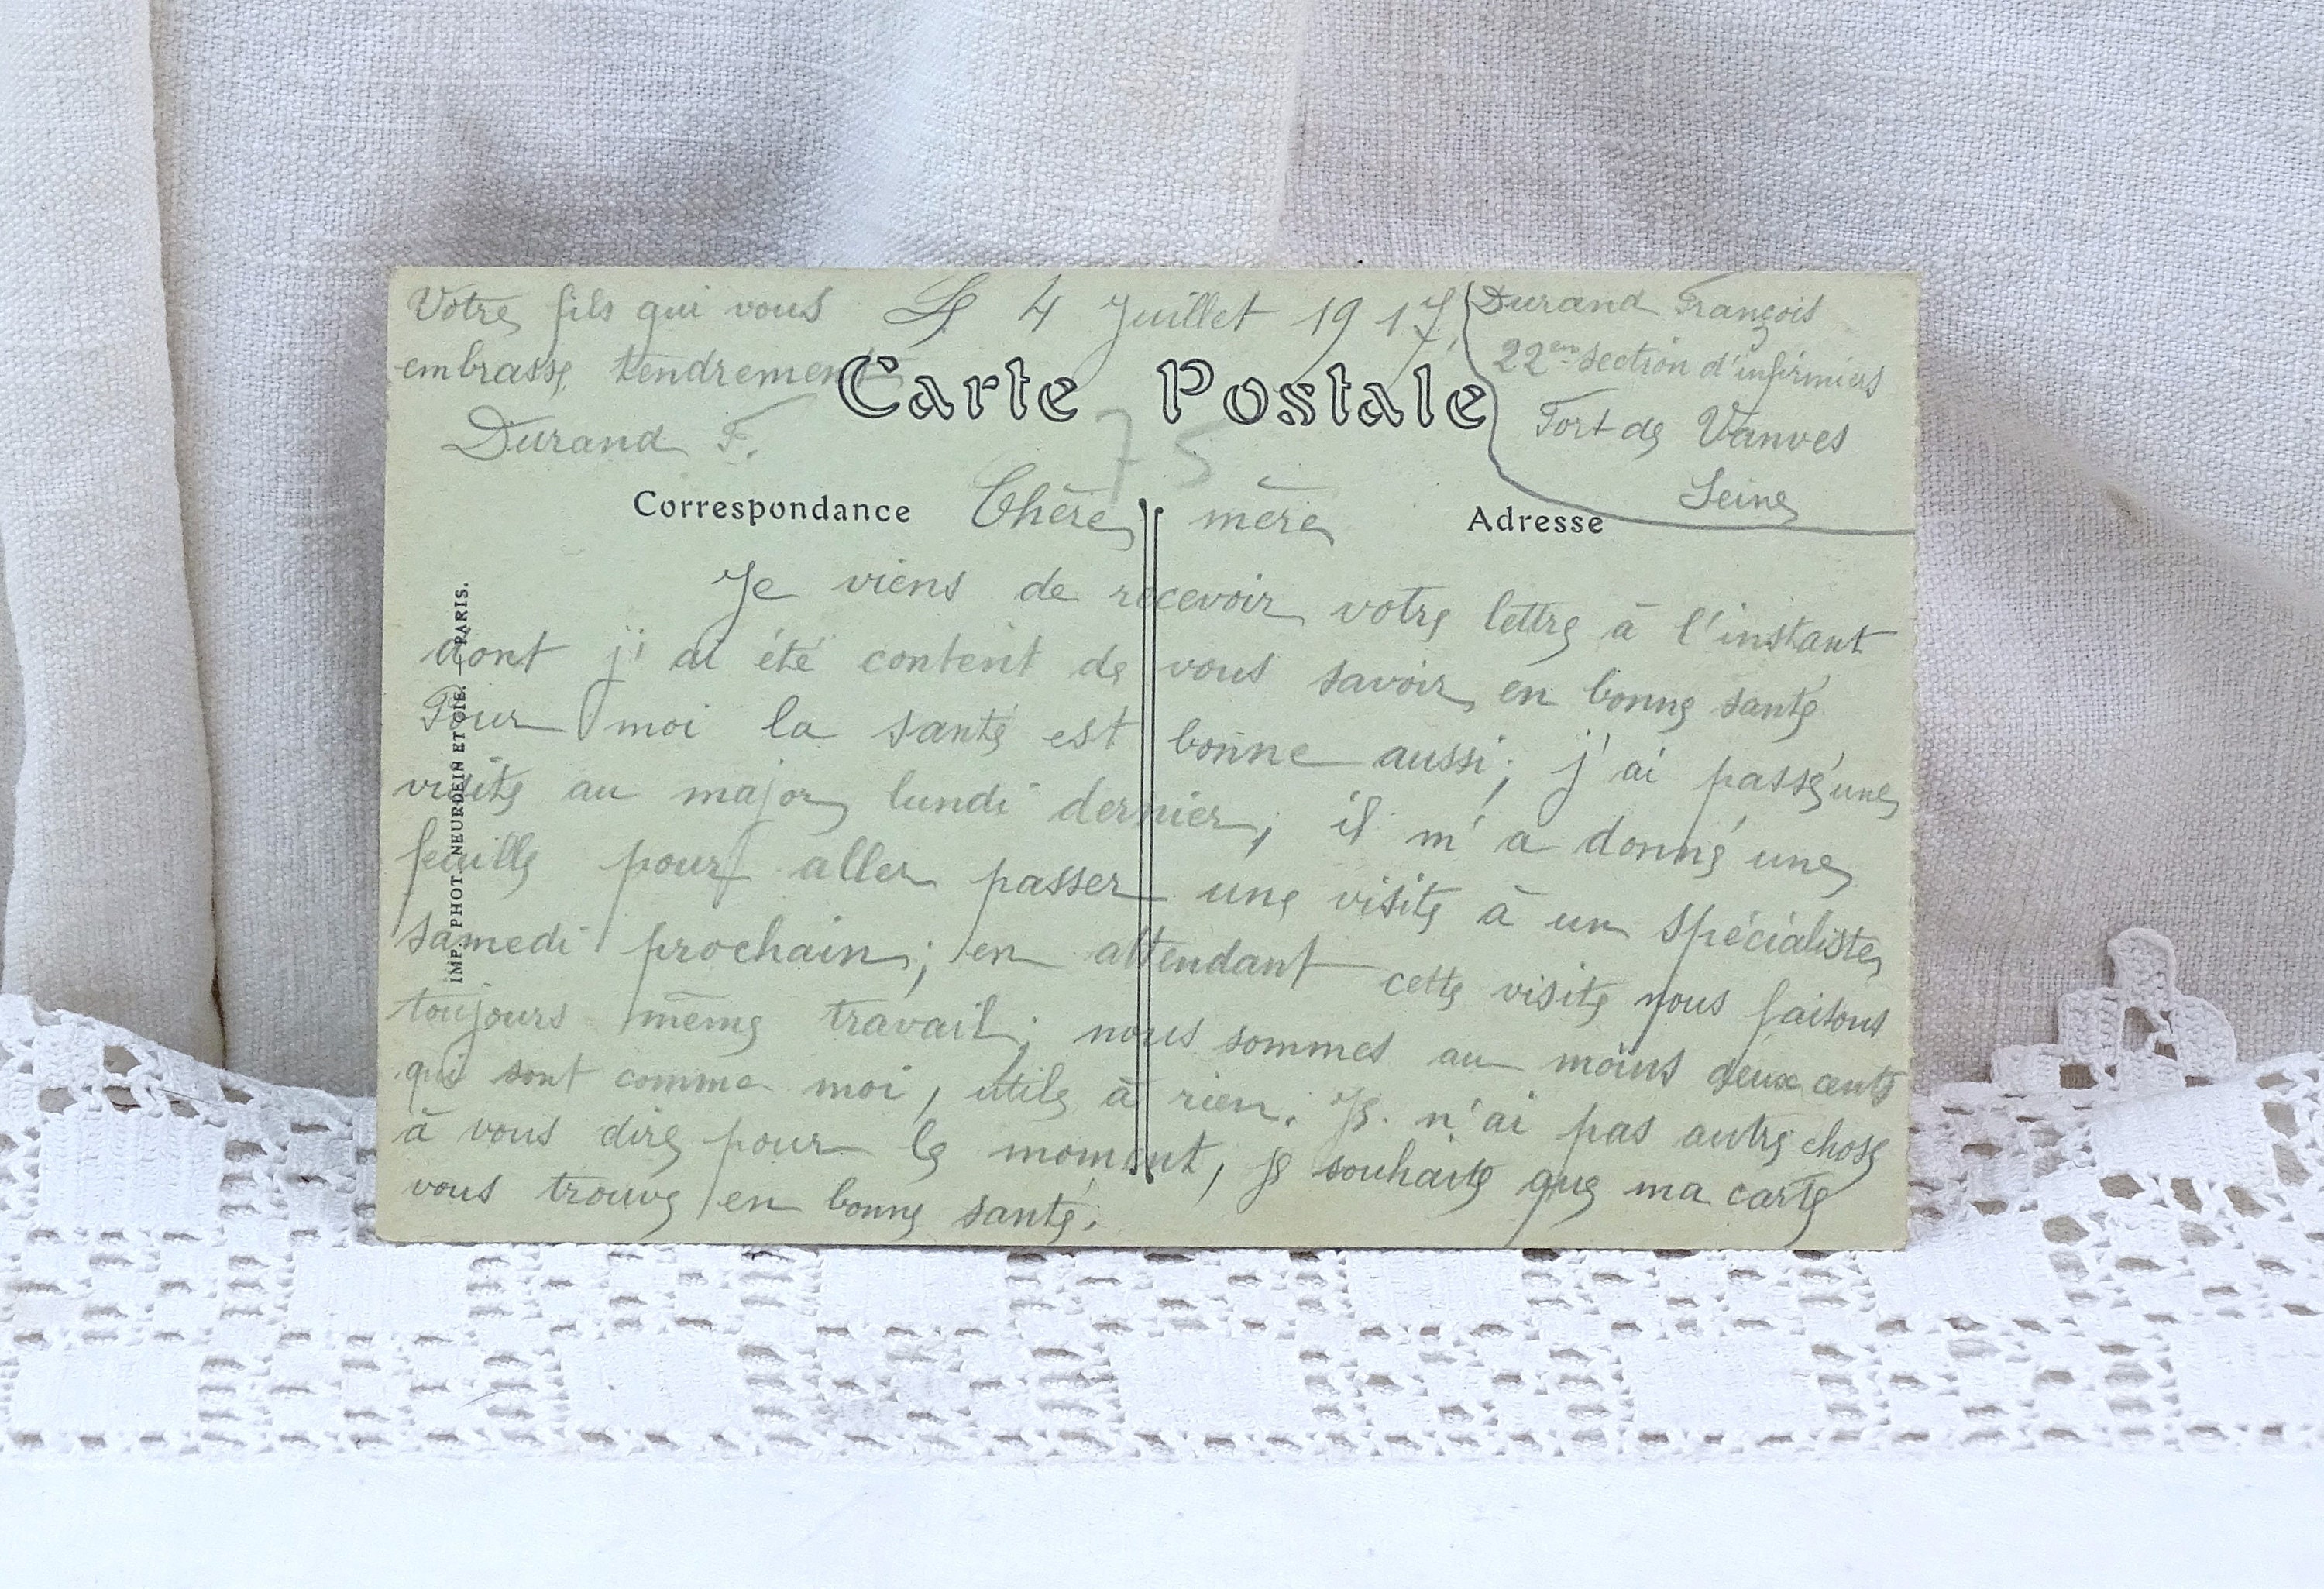 Votre fils qui vous
embrasse tendrement
Durand F.
Le 4 Juillet 1917
Durand François
22em section d'infirmiers
Fort de Vanves
Seine
Carte Postale
75
Correspondance
Adresse
Chère mère
Je viens de recevoir votre lettre à l'instant
dont j'ai été content de vous savoir en bonne santé
Pour moi la santé est bonne aussi; j'ai passé une
visite au major lundi dernier, il m'a donné une
feuille pour aller passer une visite à un spécialiste
samedi prochain; en attendant cette visite nous faisons
toujours même travail; nous sommes au moins deux cents
qui sont comme moi, utile à rien. Je n'ai pas autre chose
à vous dire pour le moment, je souhaite que ma carte
vous trouve en bonne santé.
IMP. PHOT. NEURDEIN ET CIE. — PARIS.